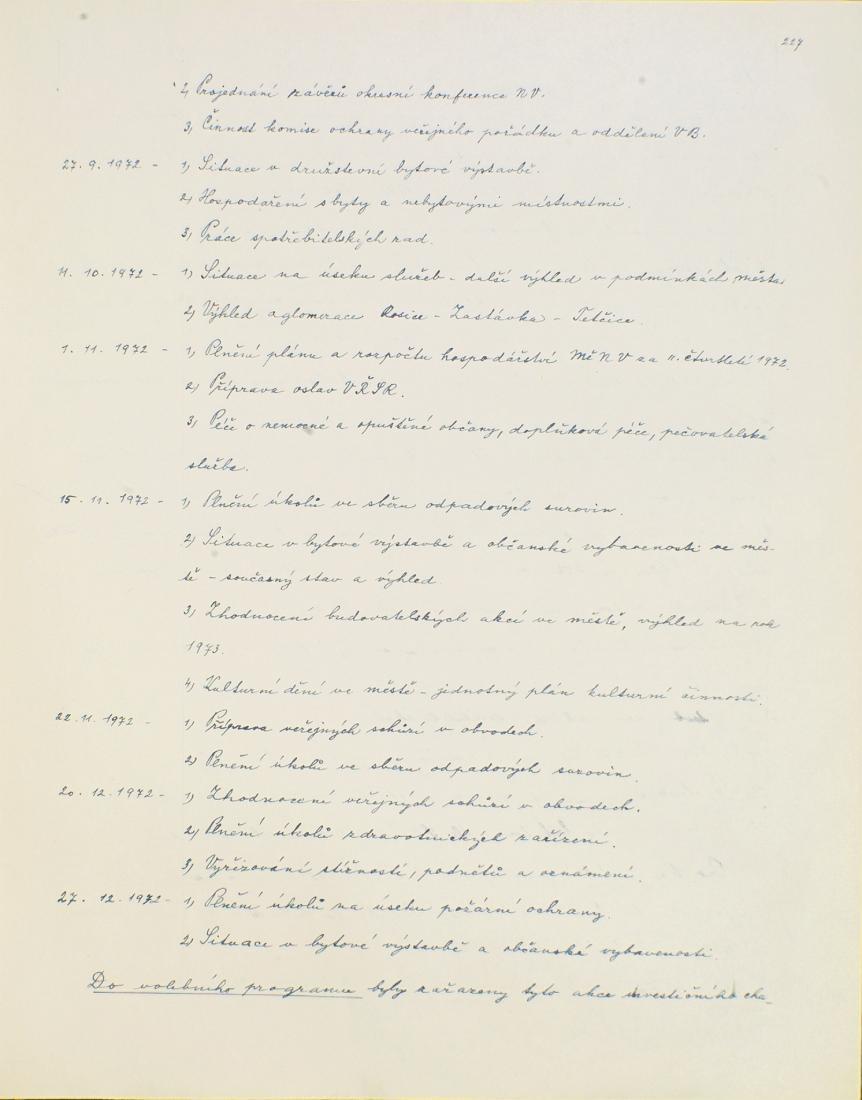 227
2, Projednání závěrů okresní konference NV.
3, Činnost komise ochrany veřejného pořádku a oddělení VB.
27. 9. 1972 - 1, Situace v družstevní bytové výstavbě.
2, Hospodaření s byty a nebytovými místnostmi.
3, Práce spotřebitelských rad.
11. 10. 1972 - 1, Situace na úseku služeb - další výhled v podmínkách města
2, Výhled aglomerace Rosice - Zastávka - Tetčice.
1. 11. 1972 - 1, Plnění plánu a rozpočtu hospodářství MěNV za II. čtvrtletí 1972.
2, Příprava oslav VŘSR.
3, Péče o nemocné a opuštěné občany, doplňková péče, pečovatelská
služba.
15. 11. 1972 - 1, Plnění úkolů ve sběru odpadových surovin.
2, Situace v bytové výstavbě a občanské vybavenosti ve měs-
tě - současný stav a výhled.
3, Zhodnocení budovatelských akcí ve městě, výhled na rok
1973.
4, Kulturní dění ve městě - jednotný plán kulturní činnosti.
22. 11. 1972 - 1, Příprava veřejných schůzí v obvodech.
2, Plnění úkolů ve sběru odpadových surovin.
20. 12. 1972 - 1, Zhodnocení veřejných schůzí v obvodech.
2, Plnění úkolů zdravotnických zařízení.
3, Vyřizování stížností, podnětů a oznámení.
27. 12. 1972 - 1, Plnění úkolů na úseku požární ochrany.
2, Situace v bytové výstavbě a občanské vybavenosti.
Do volebního programu byly zařazeny tyto akce investičního cha-